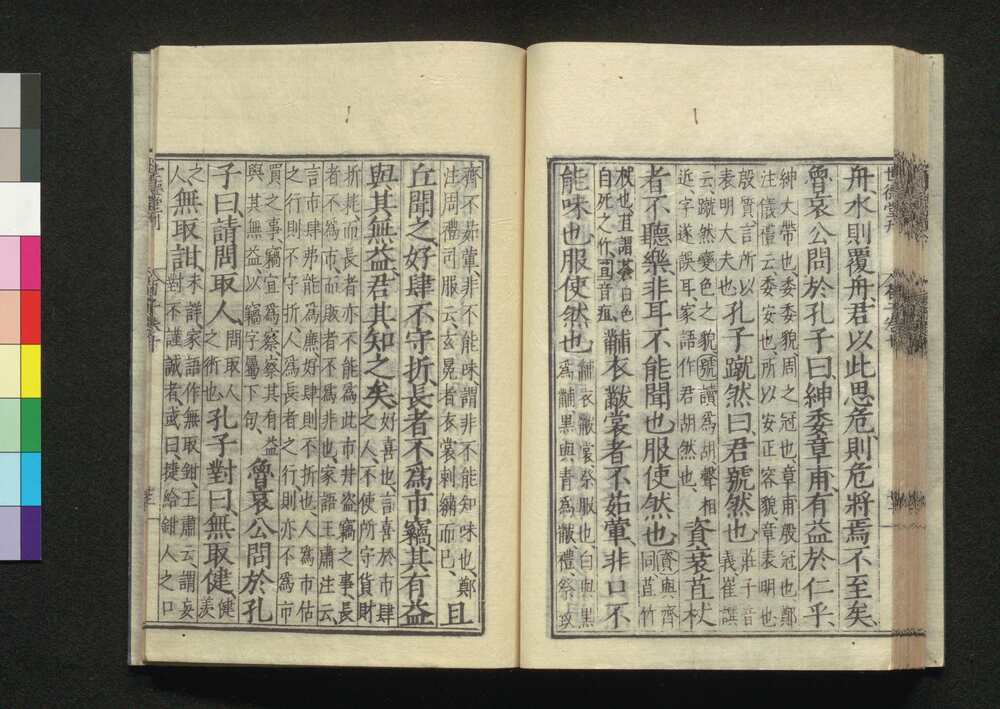 世德堂刊
舟、水則覆舟、君以此思危、則危將焉不至矣、
魯哀公問於孔子曰、紳委章甫有益於仁乎、
紳大帶也、委委貌、周之冠也、章甫殷冠也、鄭
注儀禮云、委安也、所以安正容貌、章表明也、
殷質言所以
表明大夫也、
孔子蹴然曰、君號然也
莊子音
義崔譔
云、蹴然變色之貌、號讀爲胡聲相
近、字遂誤耳、家語作君胡然也、
資衰苴杖
者不聽樂、非耳不能聞也、服使然也、
資與齊
同、苴竹
杖也、苴謂蒼白色
自死之竹、苴音疽、
黼衣黻裳者不茹葷、非口不
能味也、服使然也、
黼衣黻裳祭服也、白與黑
爲黼黑與青爲黻禮祭致
齊不茹葷、非不能味、謂非不能知味也、鄭
注周禮司服云、玄冕者衣裳刺黼而已、
且
丘聞之、好肆不守折、長者不爲市、竊其有益
與其無益、君其知之矣、
好喜也、言喜於市肆
之人、不使所守貨財
折耗、而長者亦不能爲此市井盜竊之事、長
者不爲市、而販者不爲非也、家語王肅注云、
言市肆弗能爲廉、好肆則不折也、人爲市估
之行則不守折、人爲長者之行則亦不爲市
買之事、竊宜爲察、察其有益
與其無益、以竊字屬下句、
魯哀公問於孔
子曰、請問取人、
問取人
之術也、
孔子對曰、無取健、
健
羨
之
人、
無取詌、
未詳、家語作無取鉗、王肅云、謂妄
對不謹誠者、或曰、捷給鉗人之口